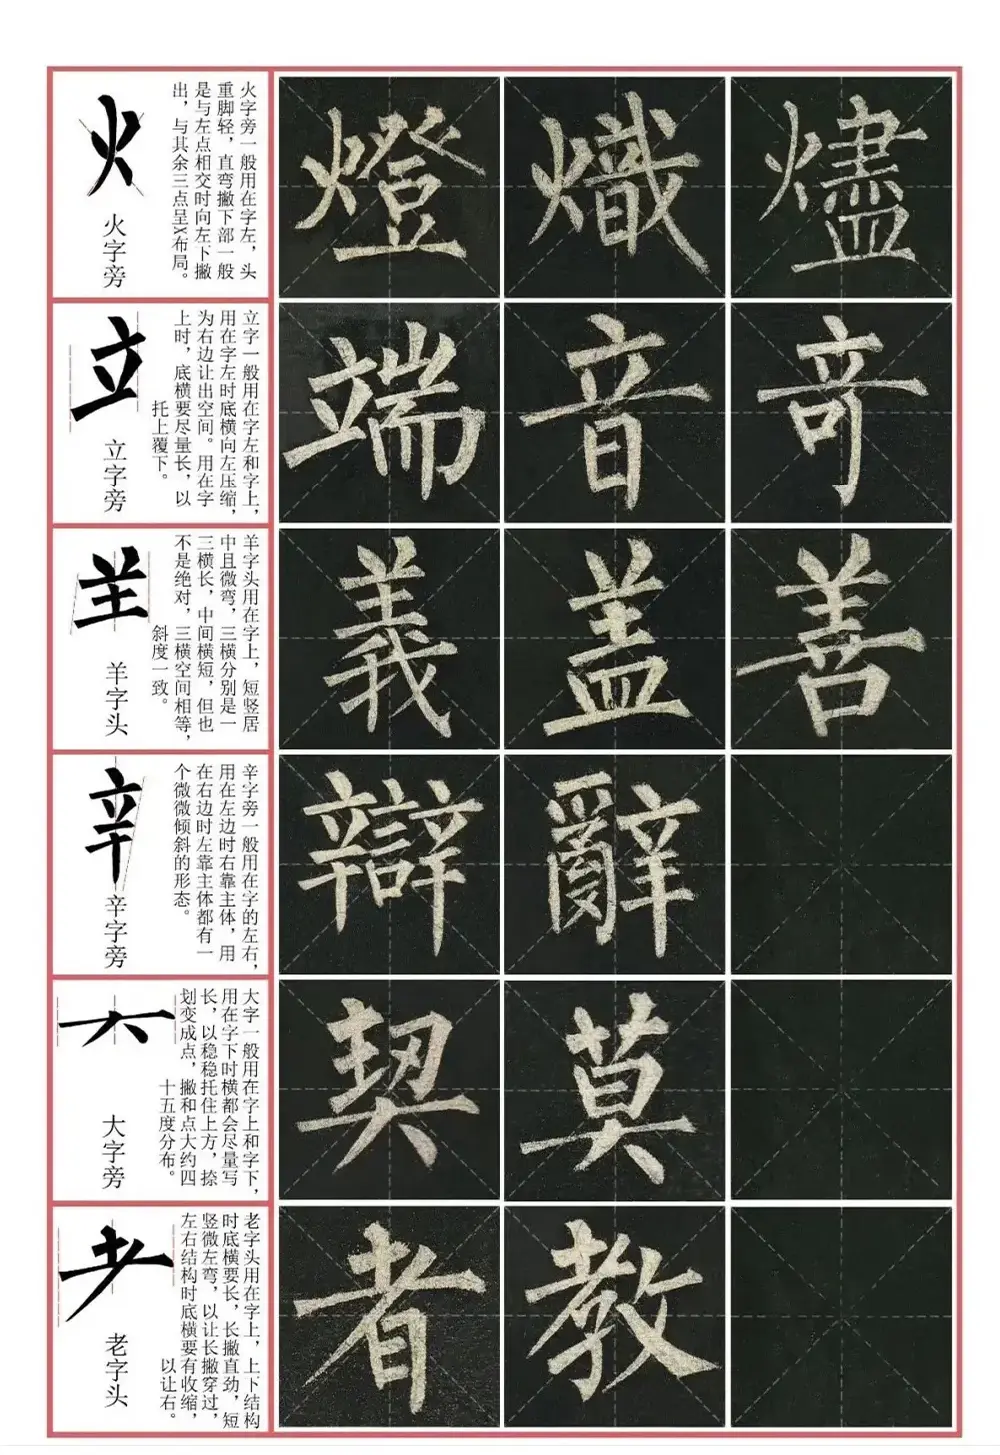 火
火字旁
火字旁一般用在字左，头
重脚轻，直弯撇下部一般
是与左点相交时向左下撇
出，与其余三点呈X布局。
燈
熾
燼
立
立字旁
立字一般用在字左和字上，
用在字左时底横向左压缩，
为右边让出空间。用在字
上时，底横要尽量长，以
托上覆下。
端
音
竒
羊字头
羊字头用在字上，短竖居
中且微弯，三横分别是一
三横长，中间横短，但也
不是绝对，三横空间相等，
斜度一致。
義
盖
善
辛
辛字旁
辛字旁一般用在字的左右，
用在左边时右靠主体，用
在右边时左靠主体都有一
个微微倾斜的形态。
辯
辭
大字旁
大字一般用在字上和字下，
用在字下时横都会尽量写
长，以稳稳托住上方，捺
划变成点，撇和点大约四
十五度分布。
契
莫
耂
老字头
老字头用在字上，上下结构
时底横要长，长撇直劲，短
竖微左弯，以让长撇穿过，
左右结构时底横要有收缩，
以让右。
者
教